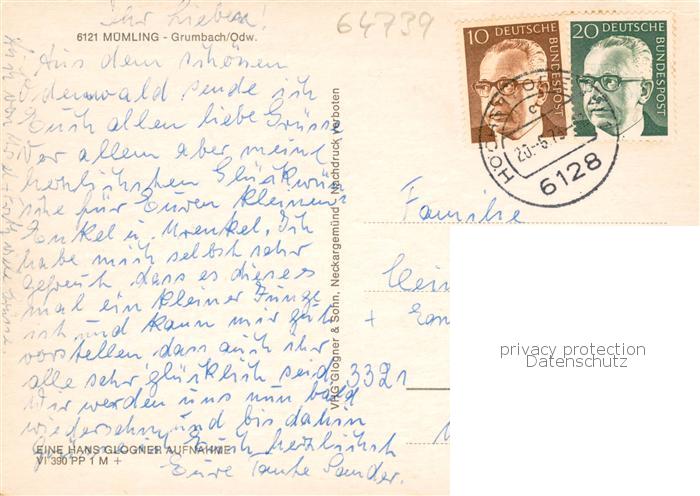 Ihr Lieben!
64739
6121 MÜMLING - Grumbach/Odw.
Aus dem schönen
Odenwald sende ich
Euch allen liebe Grüsse
Vor allem aber meine
herzlichsten Glückwün
sche für Euren kleinen
Enkel u. Urenkel. Ich
habe mich selbst sehr
gefreut dass es dieses
mal ein kleiner Junge
ist und kann mir gut
vorstellen dass auch ihr
alle sehr glücklich seid.
Wir werden uns nun bald
wiedersehn und bis dahin
Euch herzlichst
Eure Tante Sander.
EINE HANS GLOGNER AUFNAHME
VI 390 PP 1 M +
VRG Glogner & Sohn, Neckargemünd · Nachdruck verboten
10 DEUTSCHE BUNDESPOST
20 DEUTSCHE BUNDESPOST
20.-6.7
6128
Familie
+
3321
privacy protection
Datenschutz